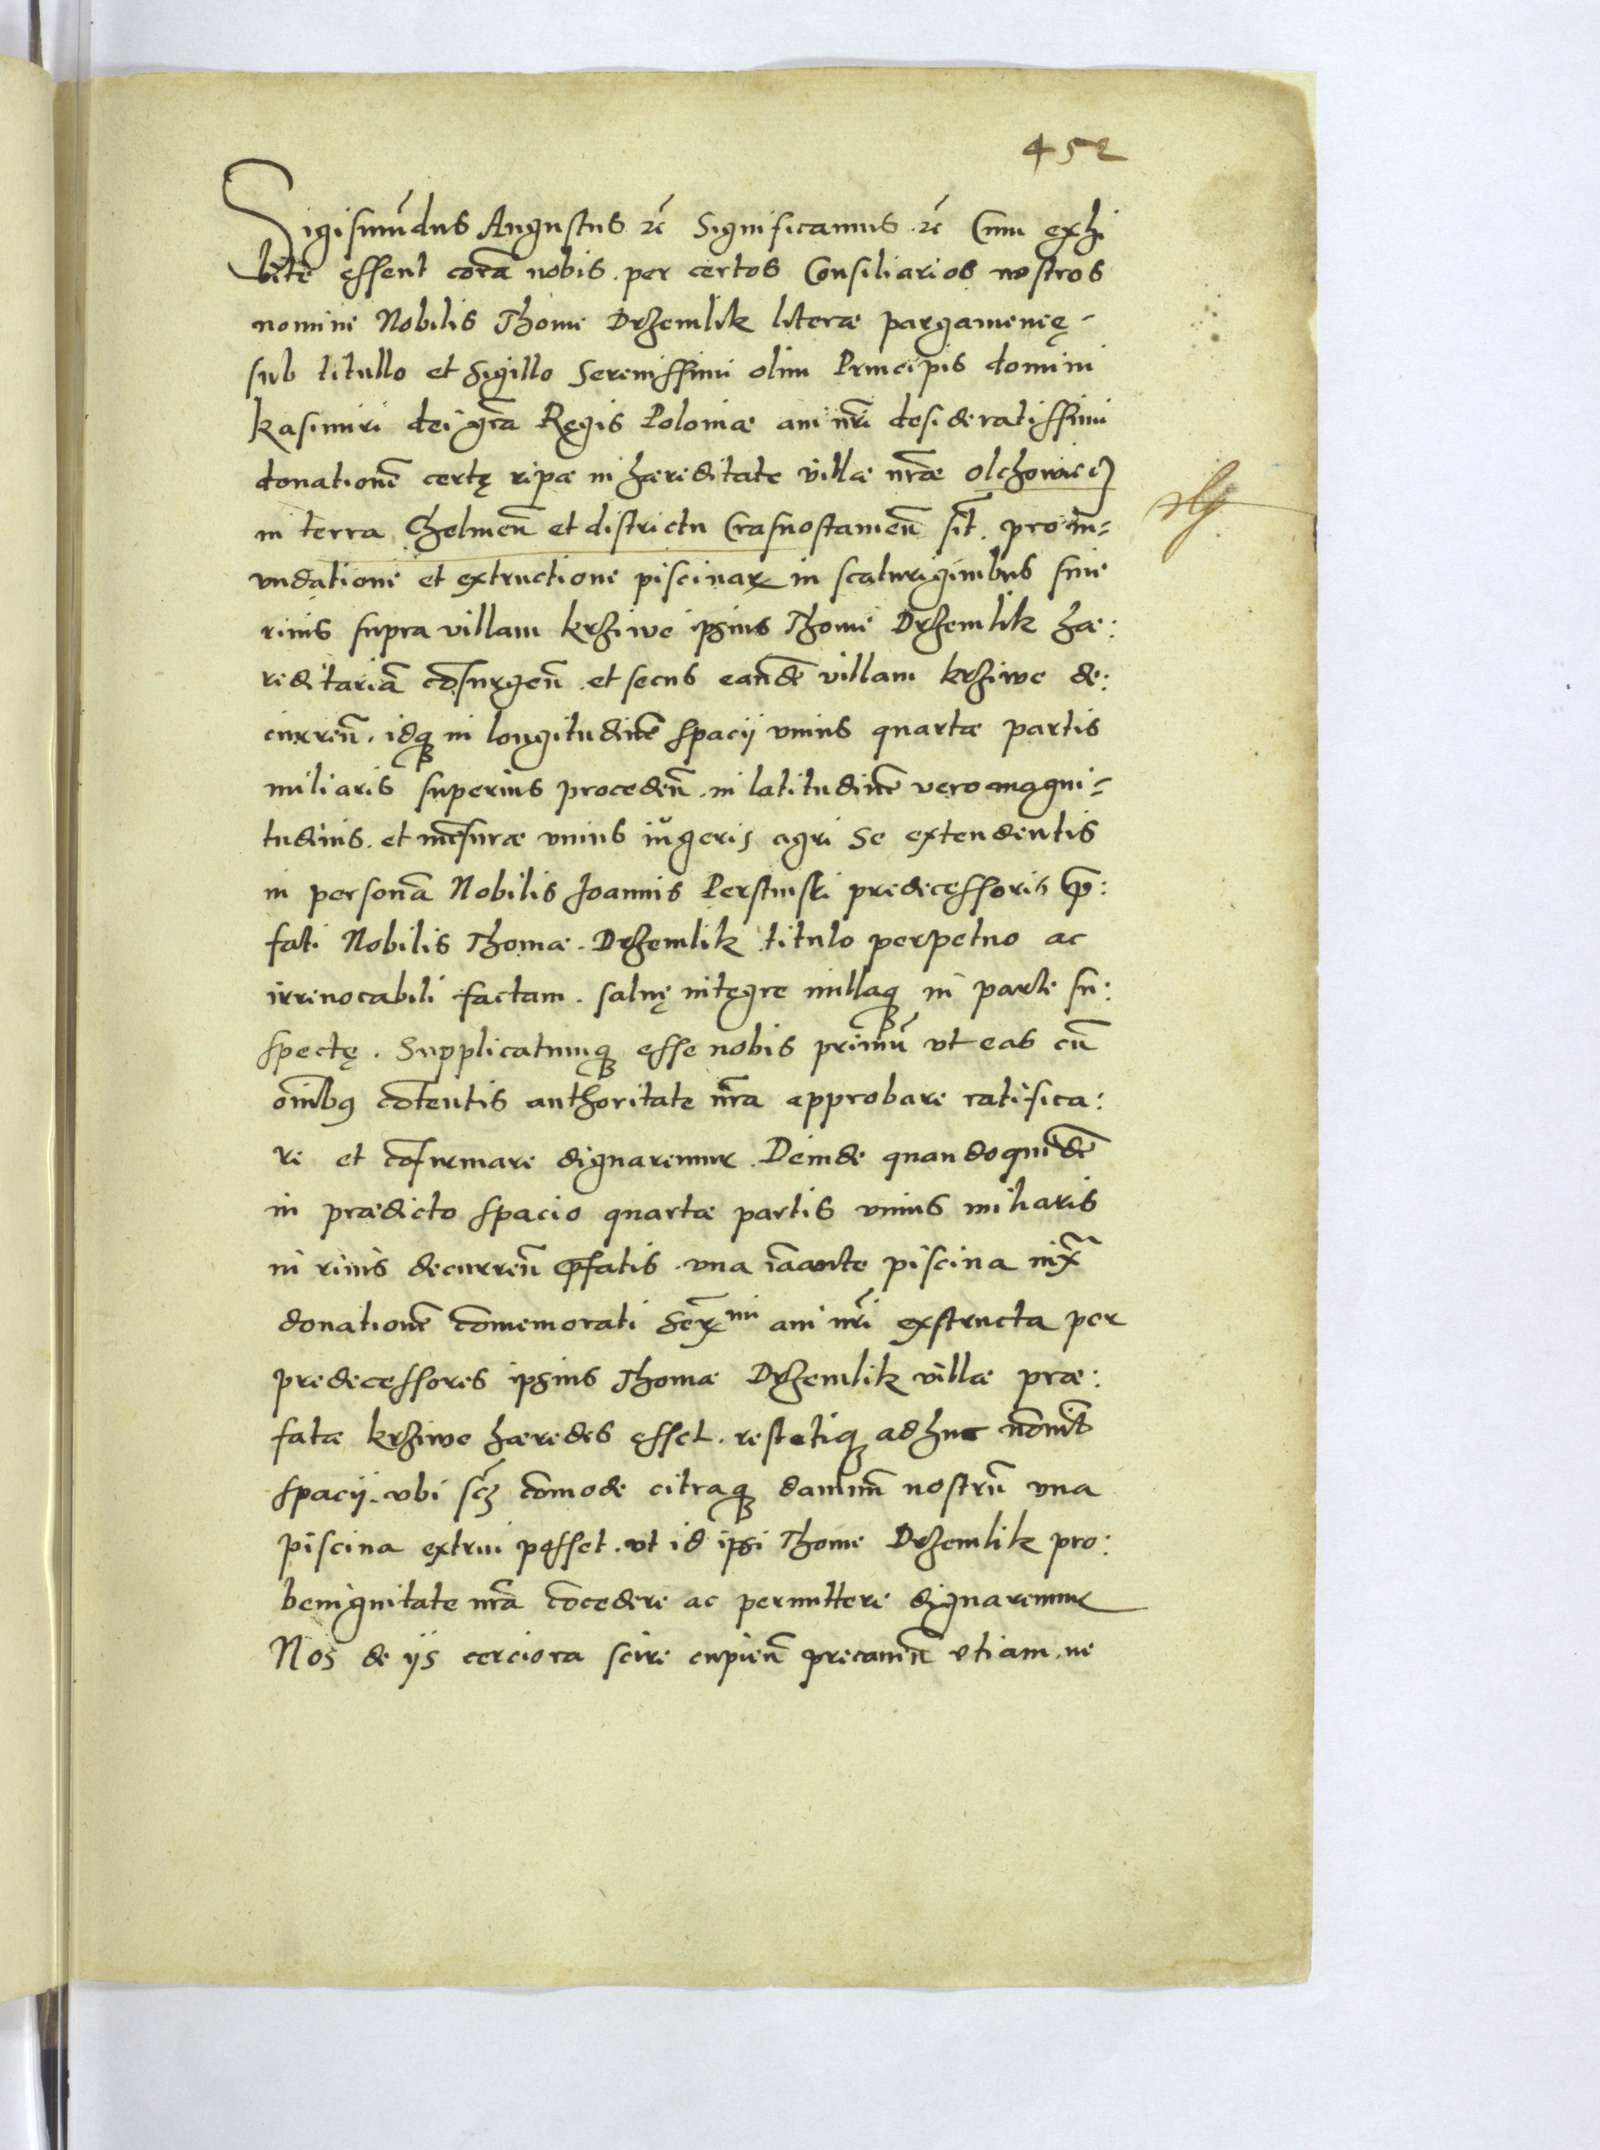 452
Sigismũdus Augustus &c̃ Significamus &c̃ Cum exhi
bite essent corã nobis per certos Consiliarios nostros
nomine Nobilis Thome Drzemlik literæ pargameneę
sub titullo et sigillo Serenissimi olim Principis domini
kasimiri dei grã Regis Poloniæ aui nr̃i desideratissimi
donationẽ certę ripæ in hæreditate villæ nr̃æ olchowiec
in terra Chelmeñ et districtu Crasnostawieñ sit̃. pro in=
undatione et extructione piscinaꝝ in scaturiginibus siue
riuis supra villam krziwe ipsius Thome Drzemlik hæ:
reditariã cõsurgeñ et secus eandẽ villam krziwe de:
curreñ. idq in longitudinẽ spacij vnius quartæ partis
miliaris superius procedeñ. in latitudinẽ vero magni=
tudinis. et mẽsuræ vnius iugeris agri se extendentis
in personã Nobilis Joannis Perstinski predecessoris p̃:
fati Nobilis Thomæ Drzemlik titulo perpetuo ac
irreuocabili factam. saluę integre nullaq in parte su:
spectę. Supplicatumq esse nobis primũ vt eas cũ
oĩbus cõtentis authoritate nr̃a approbare ratifica:
re et cõfirmare dignaremur. Deinde quandoquidẽ
in prædicto spacio quartæ partis vnius miliaris
in riuis decurreñ p̃fatis. vna iã ante piscina iuxˉ
donationẽ cõmemorati Serˉmi aui nr̃i exstructa per
predecessores ipsius Thomæ Drzemlik villæ præ:
fatæ krziwe hæredes esset. restetiq adhuc nõnihil
spacij. vbi scz cõmode citraq damnũ nostrũ vna
piscina extrui posset. vt id ipsi Thome Drzemlik pro:
benignitate nr̃a cõcedere ac permittere dignaremur
Nos de ijs cerciora scire cupieñ precaueñ etiam. ne